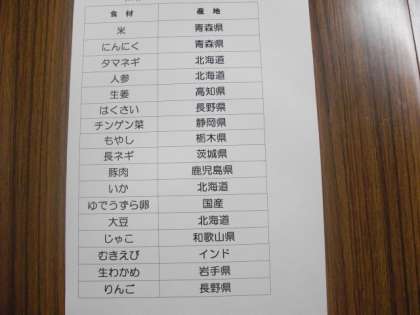 食材 産地
米 青森県
にんにく 青森県
タマネギ 北海道
人参 北海道
生姜 高知県
はくさい 長野県
チンゲン菜 静岡県
もやし 栃木県
長ネギ 茨城県
豚肉 鹿児島県
いか 北海道
ゆでうずら卵 国産
大豆 北海道
じゃこ 和歌山県
むきえび インド
生わかめ 岩手県
りんご 長野県